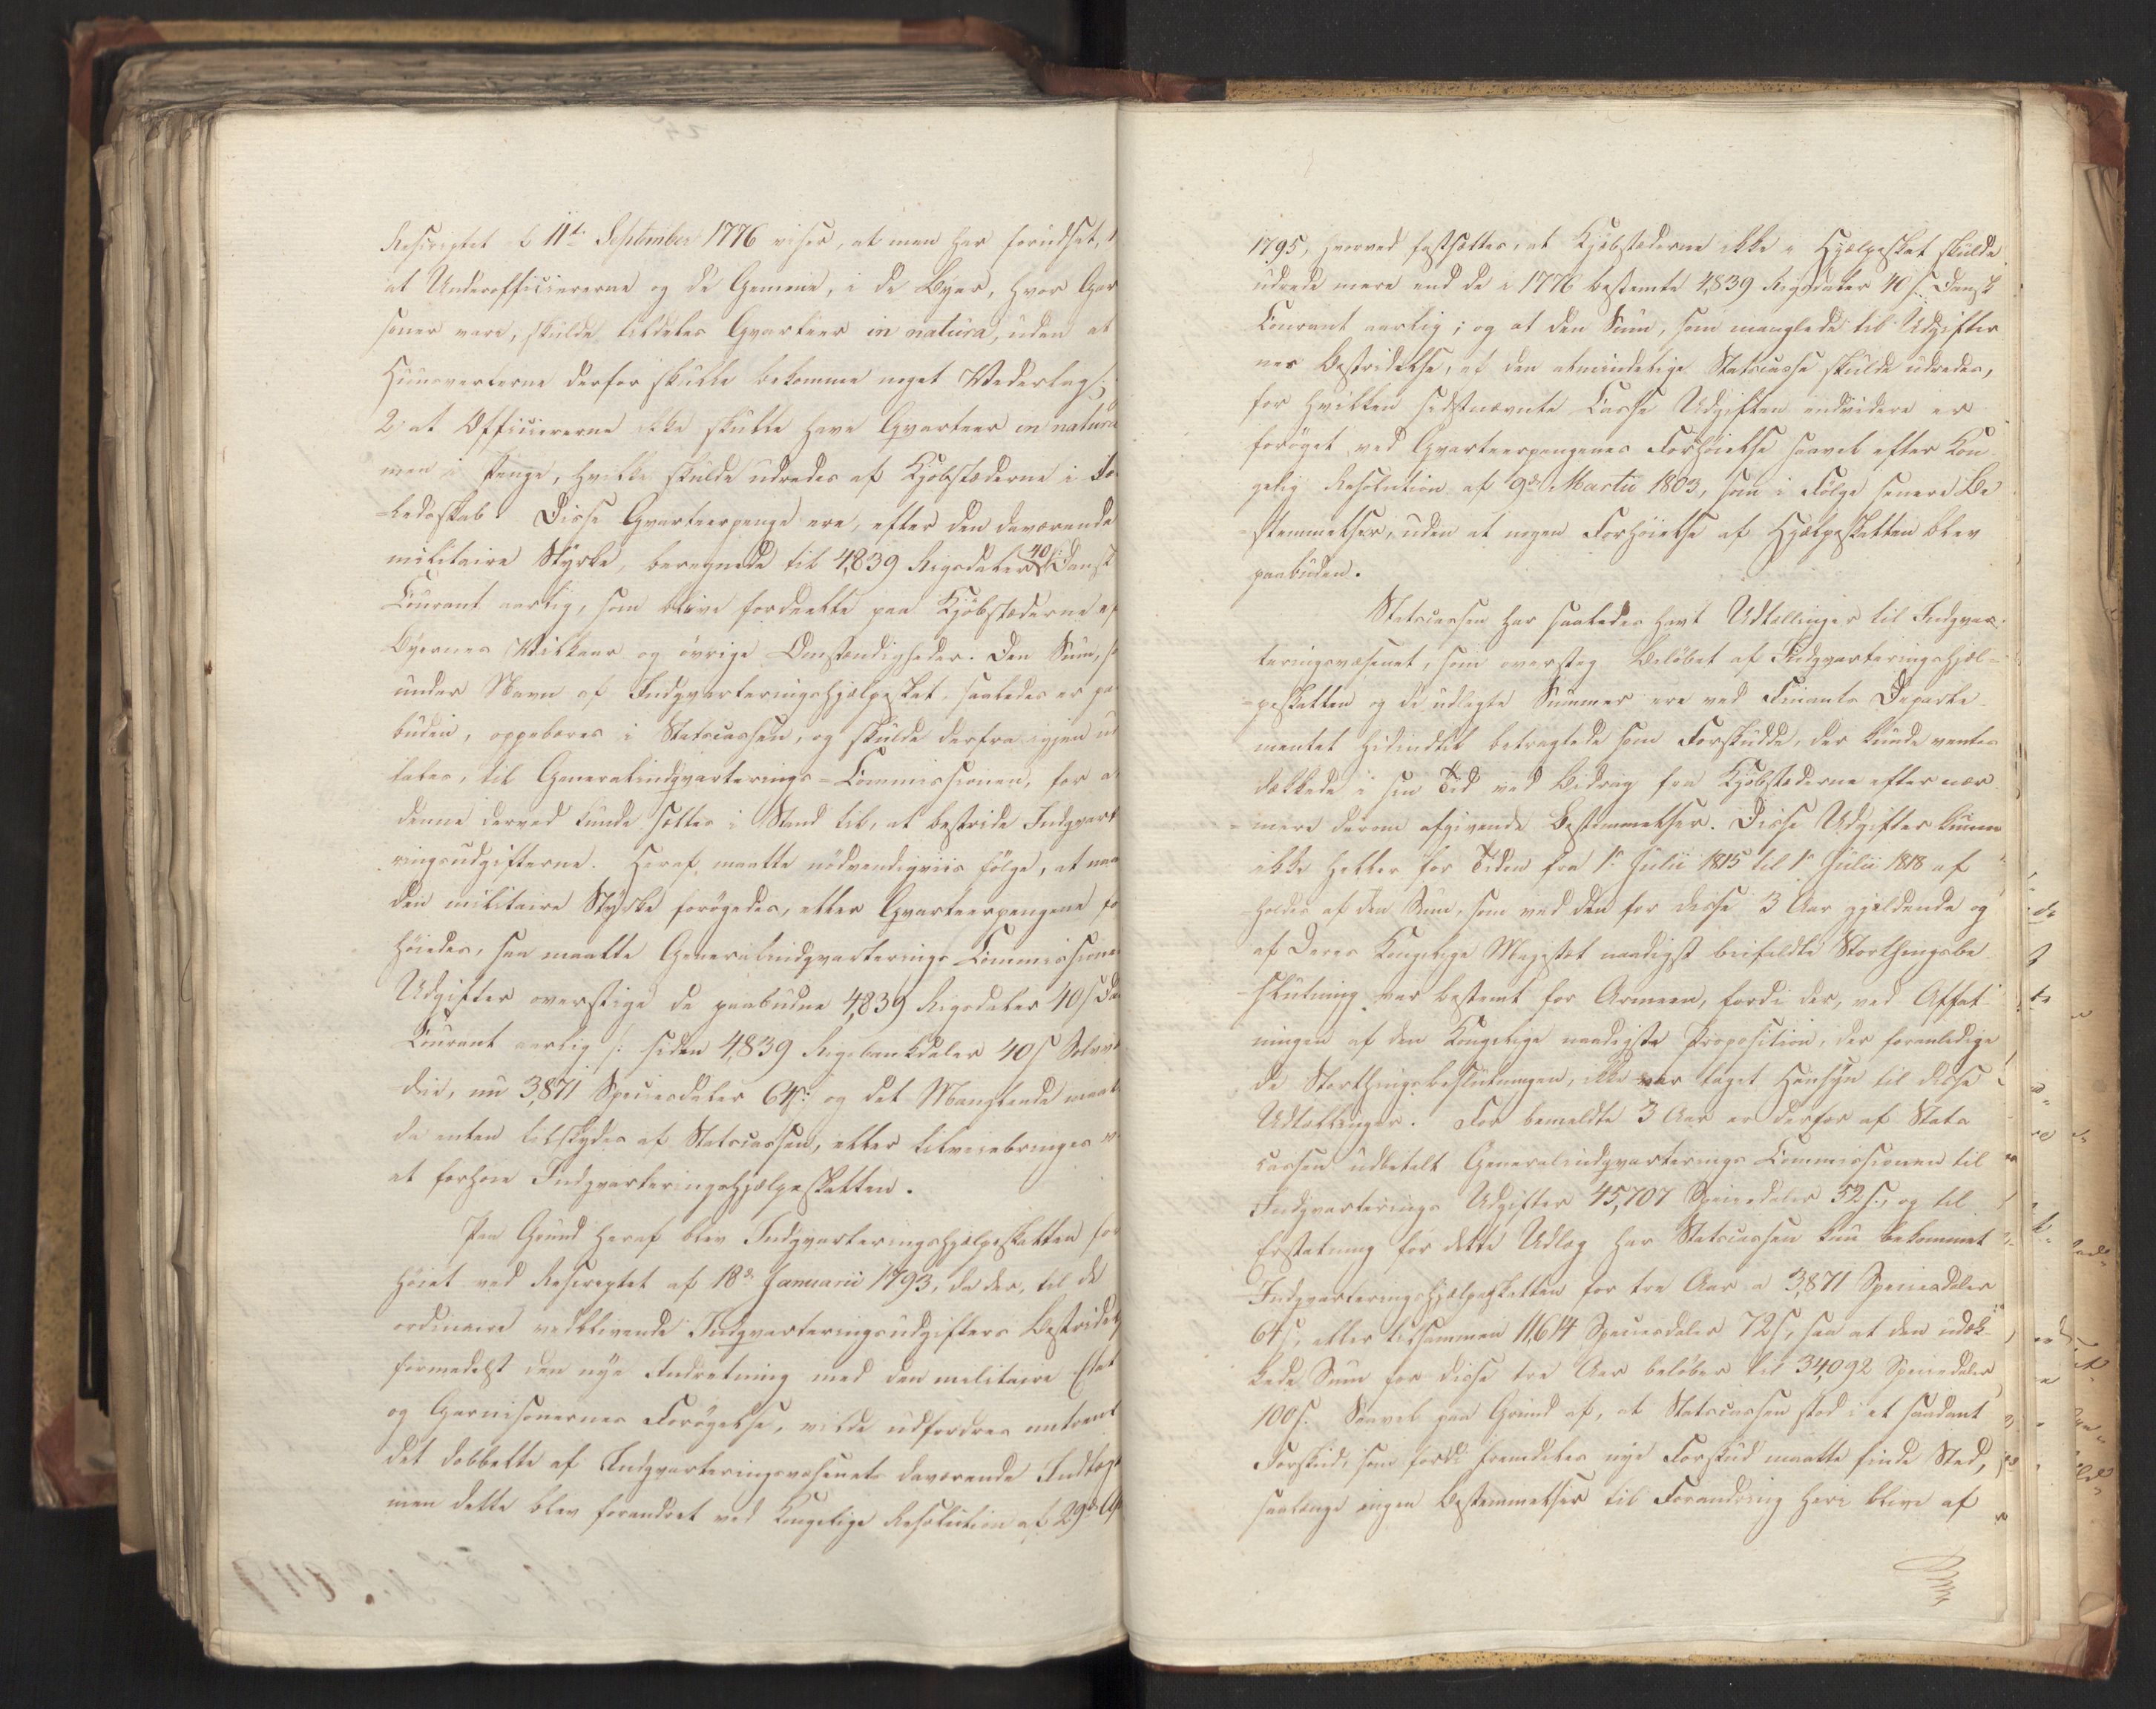 Rescriptet af 11te September 1776 viser, at man har forudsat, 1
at Underofficiererne og de Gemene, i de Byer, hvor Gar
soner vare, skulde tildeles Qvarteer in natura, uden at
Huusverterne derfor skulle bekomme noget Vederlag;
2. at Officiererne ikke skulle have Qvarteer in natura
men i Penge, hvilke skulde udredes af Kjøbstæderne i Fæ
lledsskab. Disse Qvarteerpenge ere, efter den daværende
militaire Styrke, beregnede til 4,839 Rigsdaler 40 s. Dansk
Courant aarlig, som bleve fordeelte paa Kjøbstæderne ef
Byernes Vilkaar og øvrige Omstændigheder. Den Sum, so
under Navn af Indqvarteringshjælpeskat, saaledes er pa
buden, oppebæres i Statscassen, og skulde derfra igjen ud
tales, til Generalindqvarterings-Commissionen, for a
denne derved kunde sættes i Stand til, at bestride Indqvart
ringsudgifterne. Heraf maatte nødvendigviis følge, at naa
den militaire Styrke forøgedes, eller Qvarteerpengene fo
høiedes, saa maatte Generalindqvarterings Commissione
Udgifter overstige de paabudne 4,839 Rigsdaler 40 s Da
Courant aarlig /: siden 4,839 Rigsbankdaler 40 s Sølvvæ
die, nu 3,871 Speciesdaler 64 s: og det Manglende maat
de enten tilskydes af Statscassen, eller tilveiebringes v
at forhøie Indqvarteringshjælpeskatten.
Paa Grund heraf blev Indqvarteringshjælpeskatten for
høiet ved Rescriptet af 18de Januarii 1793, da der, til de
ordinaire vedblivende Indqvarteringsudgifters Bestridel
formedelst den nye Indretning med den militaire Etat
og Garnisonernes Forøgelse, vilde udfordres omtrent
det dobbelte af Indqvarteringsvæsenets daværende Indtægt
men dette blev forandret ved Kongelige Resolution af 29de Ap
1795, hvorved fastsættes, at Kjøbstæderne ikke i Hjælpeskat skulde
udrede mere end de i 1776 bestemte 4,839 Rigsdaler 40 s. Dansk
Courant aarlig; og at den Sum, som manglede til Udgifter
nes Bestridelse, af den almindelige Statscasse skulde udredes,
for hvilken sidstnævnte Casse Udgiften endvidere er
forøget ved Qvarteerpengenes Forhøielse saavel efter Kon
gelig Resolution af 9de Martii 1803, som i Følge senere Be
stemmelser, uden at nogen Forhøielse af Hjælpeskatten blev
paabuden.
Statscassen har saaledes havt Udtællinger til Indqvar
teringsvæsenet, som oversteg Beløbet af Indqvarteringshjæl-
peskatten og de udlagte Summer ere ved Finants Departe
mentet hidindtil betragtede som Forskudde, der kunde ventes
dækkede i sin Tid ved Bidrag fra Kjøbstæderne efter nær
mere derom afgivende Bestemmelser. Disse Udgifter kunne
ikke heller for Tiden fra 1r Julii 1815 til 1r Julii 1818 af
holdes af den Sum, som ved den for disse 3 Aar gjeldende og
af Deres Kongelige Majestæt naadigst bifaldte Storthingsbe
slutning var bestemt for Armeen, fordi der, ved Affat-
ningen af den Kongelige naadigste Proposition, der foranledige
de Storthingsbeslutningen, ikke var taget Hensyn til disse
Udtællinger. For bemeldte 3 Aar er derfor af Stats
cassen udbetalt Generalindqvarterings Commissionen til
Indqvarterings Udgifter 45,707 Speciesdaler 52 s., og til
Erstatning for dette Udlæg har Statscassen kun bekommet
Indqvarteringshjælpeskatten for tre Aar a 3,871 Speciesdaler
64 s, eller tilsammen 11,614 Speciesdaler 72 s, saa at den udæk
kede Sum for disse tre Aar beløber til 34,092 Speciesdaler
100 s. Saavel paa Grund af, at Statscassen stod i et saadant
Forskud, som fordi fremdeles nye Forskud maatte finde Sted,
saalænge ingen Bestemmelser til Forandring heri bleve af